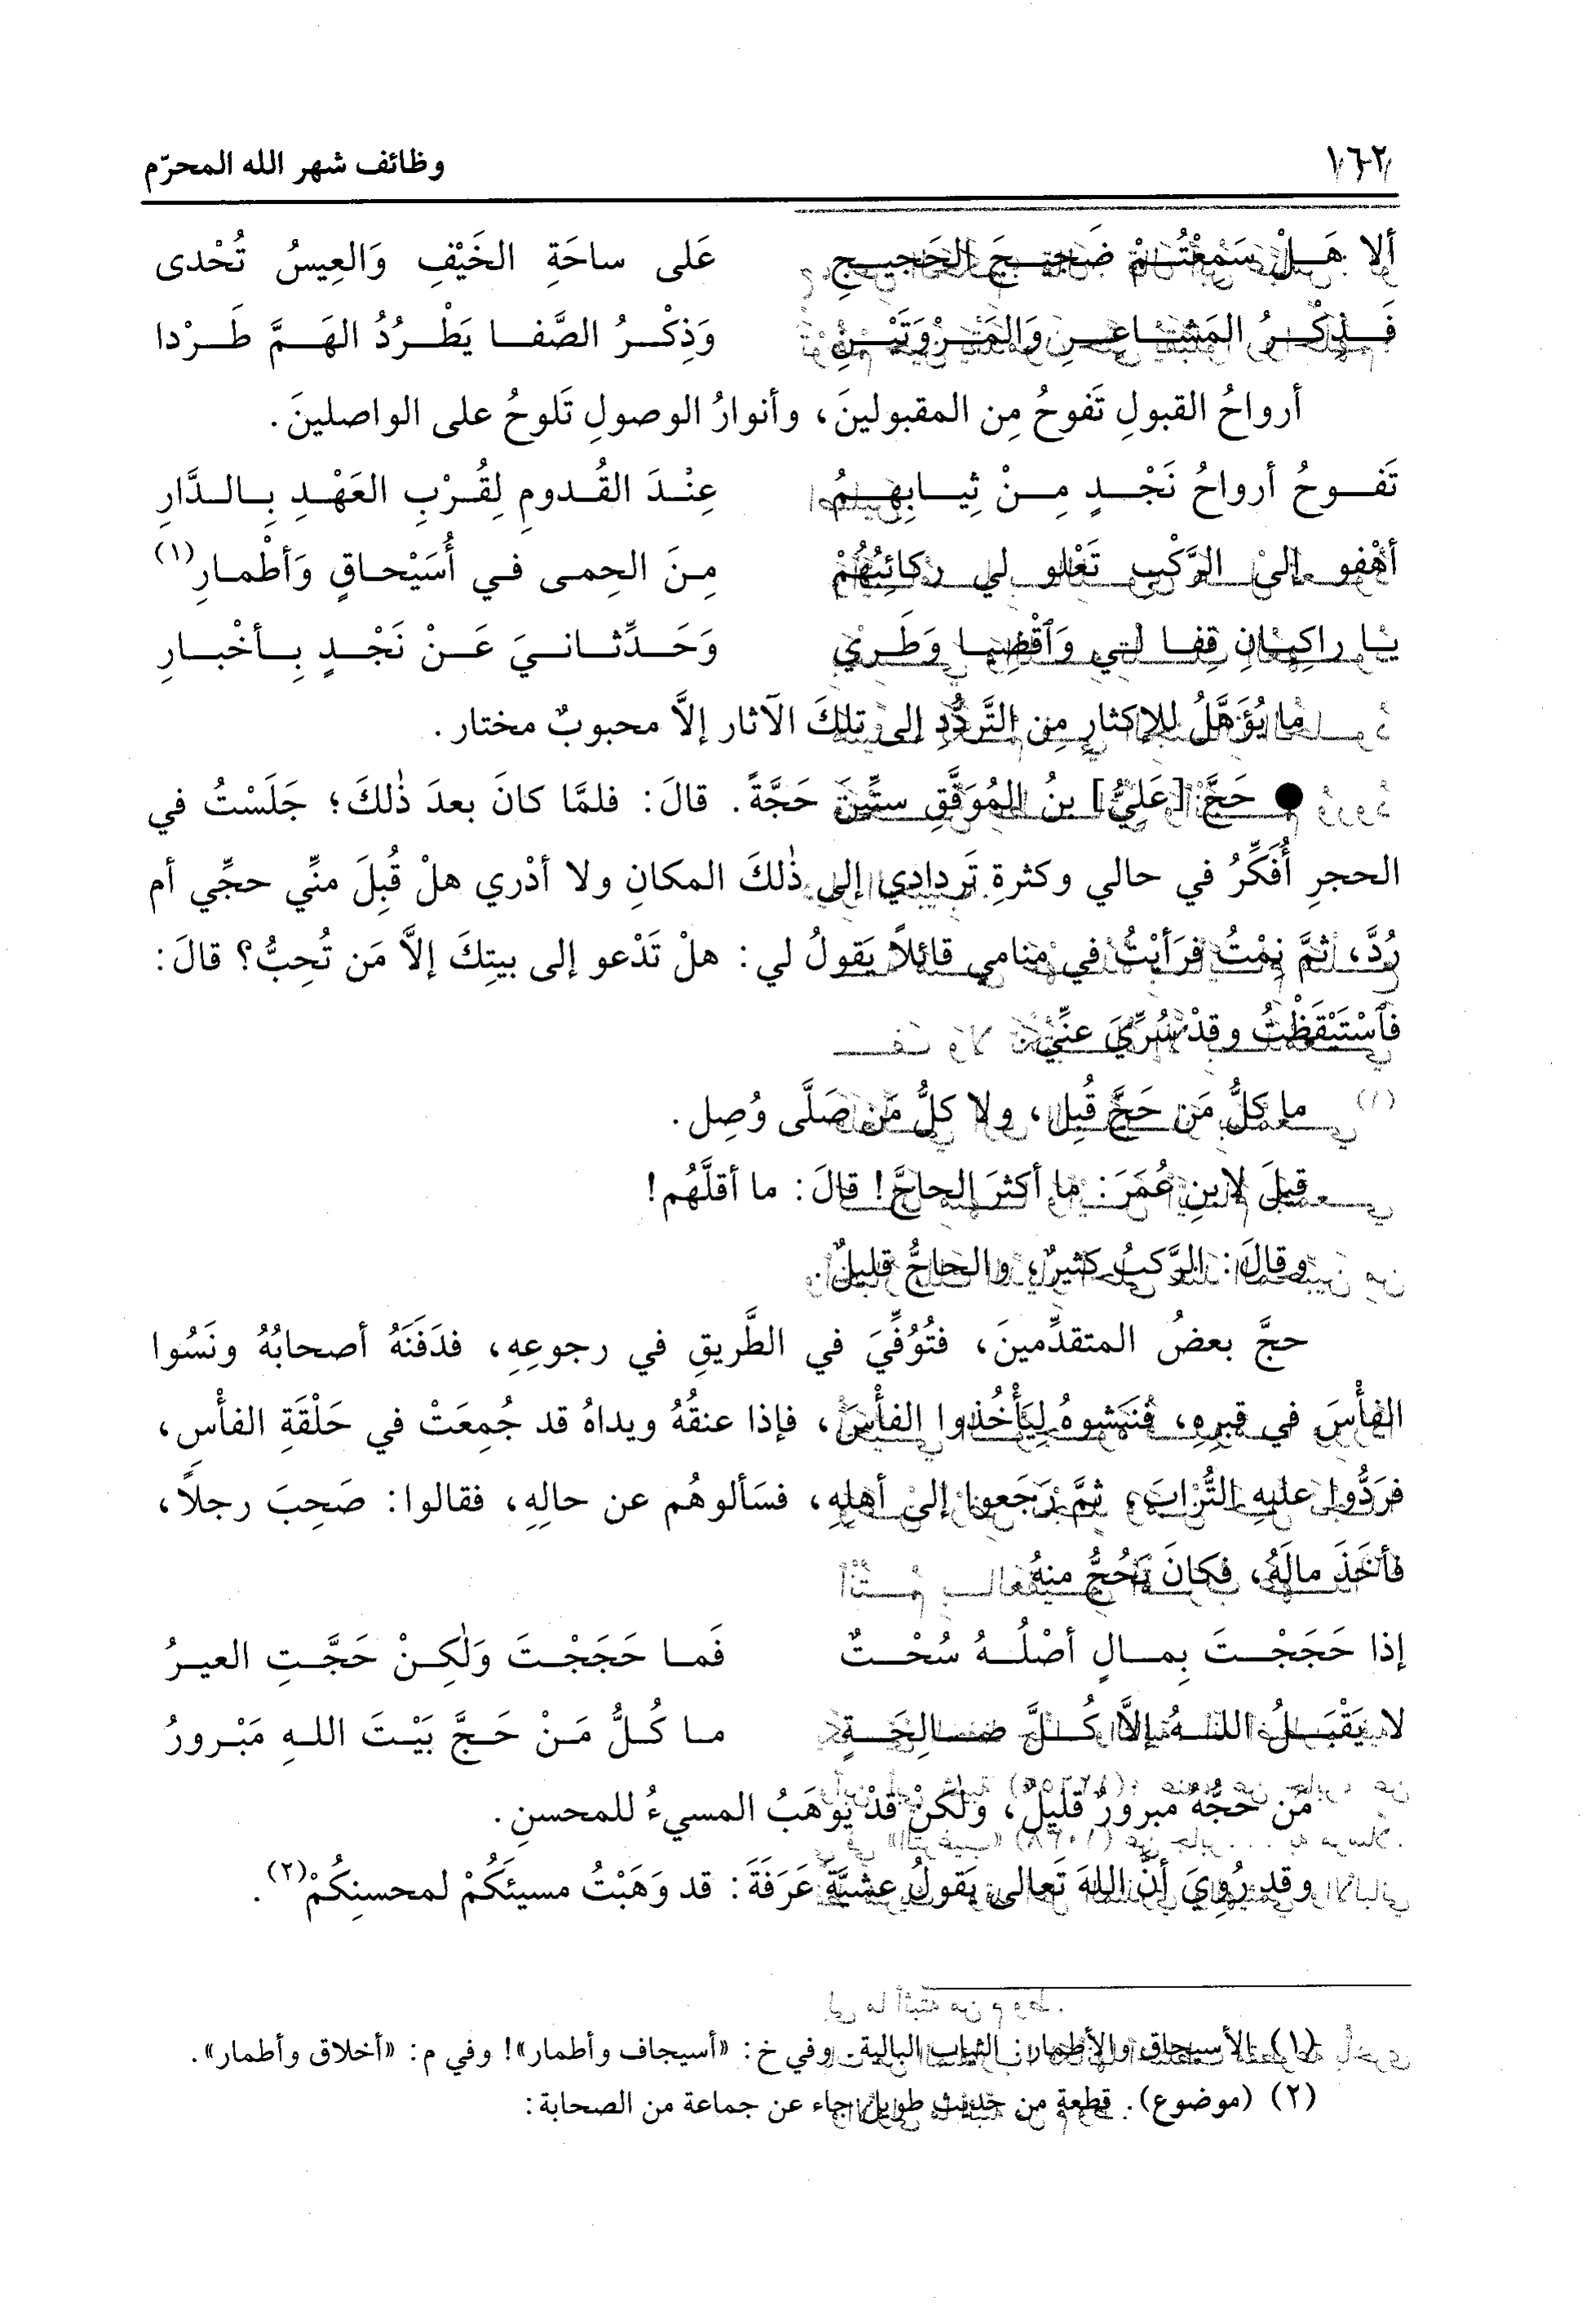 ١٦٢ وظائف شهر الله المحرّم
ألا هَـــلْ سَمِعْتُـــمْ ضَجيـــجَ الحَجيـــجِ عَلى ساحَةِ الخَيْفِ وَالعِيسُ تُحْدى
فَـــذِكْـــرُ المَشـــاعِـــرِ وَالمَـــرْوَتَيْـــنِ وَذِكْـــرُ الصَّفـــا يَطْـــرُدُ الهَـــمَّ طَـــرْدا
أرواحُ القبولِ تَفوحُ مِن المقبولينَ، وأنوارُ الوصولِ تَلوحُ على الواصلينَ.
تَفـــوحُ أرواحُ نَجْـــدٍ مِـــنْ ثِيـــابِهِـــمُ عِنْـــدَ القُـــدومِ لِقُـــرْبِ العَهْـــدِ بِـــالـــدَّارِ
أهْفو إلى الرَّكْبِ تَعْلو لي ركائِبُهُمْ مِـنَ الحِمـى فـي أُسَيْحـاقٍ وَأطْمـارِ(١)
يـــا راكِبـــانِ قِفـــا لـــي وَٱقْضِيـــا وَطَـــري وَحَـــدِّثـــانـــيَ عَـــنْ نَجْـــدٍ بِـــأخْبـــارِ
ما يُؤَهَّلُ للإكثارِ مِن التَّردُّدِ إلى تلكَ الآثار إلَّا محبوبٌ مختار.
● حَجَّ [عَلِيُّ] بنُ المُوَفَّقِ ستِّينَ حَجَّةً. قالَ: فلمَّا كانَ بعدَ ذٰلكَ؛ جَلَسْتُ في
الحجرِ أُفَكِّرُ في حالي وكثرةِ تَردادي إلى ذٰلكَ المكانِ ولا أدْري هلْ قُبِلَ منِّي حجِّي أم
رُدَّ، ثمَّ نِمْتُ فرَأيْتُ في منامي قائلاً يَقولُ لي: هلْ تَدْعو إلى بيتِكَ إلَّا مَن تُحِبُّ؟ قالَ:
فٱسْتَيْقَظْتُ وقدْ سُرِّيَ عنِّي.
ما كلُّ مَن حَجَّ قُبِل، ولا كلُّ مَن صَلَّى وُصِل.
قيلَ لابنِ عُمَرَ: ما أكثرَ الحاجَّ! قالَ: ما أقلَّهُم!
وقالَ: الرَّكبُ كثيرٌ، والحاجُّ قليلٌ.
حجَّ بعضُ المتقدِّمينَ، فتُوُفِّيَ في الطَّريقِ في رجوعِهِ، فدَفَنَهُ أصحابُهُ ونَسُوا
الفأْسَ في قبرِهِ، فنَبَشوهُ لِيَأْخُذوا الفأْسَ، فإذا عنقُهُ ويداهُ قد جُمِعَتْ في حَلْقَةِ الفأْسِ،
فرَدُّوا عليهِ التُّرابَ، ثمَّ رَجَعوا إلى أهلِهِ، فسَألوهُم عن حالِهِ، فقالوا: صَحِبَ رجلاً،
فأخَذَ مالَهُ، فكانَ يَحُجُّ منهُ.
إذا حَجَجْـــتَ بِمـــالٍ أصْلُـــهُ سُحْـــتٌ فَمـا حَجَجْـتَ وَلٰكِـنْ حَجَّـتِ العيـرُ
لا يَقْبَـــلُ اللـــهُ إلَّا كُـــلَّ صـــالِحَـــةٍ مـا كُـلُّ مَـنْ حَـجَّ بَيْـتَ اللـهِ مَبْـرورُ
مَن حَجُّهُ مبرورٌ قليلٌ، ولٰكنْ قدْ يُوهَبُ المسيءُ للمحسنِ.
وقد رُوِيَ أنَّ اللهَ تَعالى يَقولُ عشيَّةَ عَرَفَةَ: قد وَهَبْتُ مسيئَكُمْ لمحسنِكُمْ(٢).
(١) الأسيحاق والأطمار: الثياب البالية. وفي خ: «أسيجاف وأطمار»! وفي م: «أخلاق وأطمار».
(٢) (موضوع). قطعة من حديث طويل جاء عن جماعة من الصحابة: